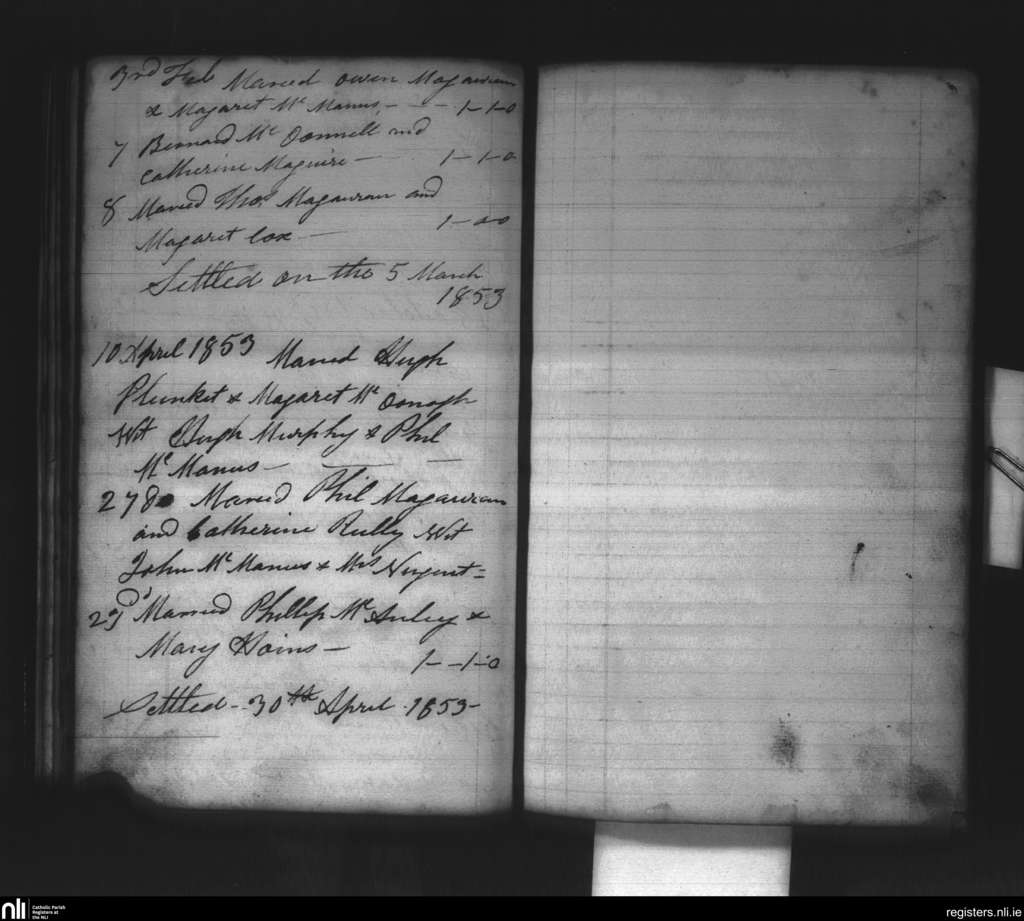 3rd Feb Maried owen Magauran
& Magaret Mc Manus, - - - 1-1-0
7 Bernard Mc Donnell and
Catherine Maguire - 1-1-0
8 Maried Thos Magauran and
Magaret Cox - 1-0-0
Settled on the 5 March
1853
10 April 1853 Maried Hugh
Plunket & Magaret Mc Donogh
Wit Hugh Murphy & Phil
Mc Manus -
27 Maried Phil Magauran
and Catherine Reilly Wit
John Mc Manus & Mrs Nugent =
29 Married Phillip Mc &
Mary - 1--1-0
Settled - 30th April 1853 -
nli Catholic Parish
Registers at
the NLI
registers.nli.ie